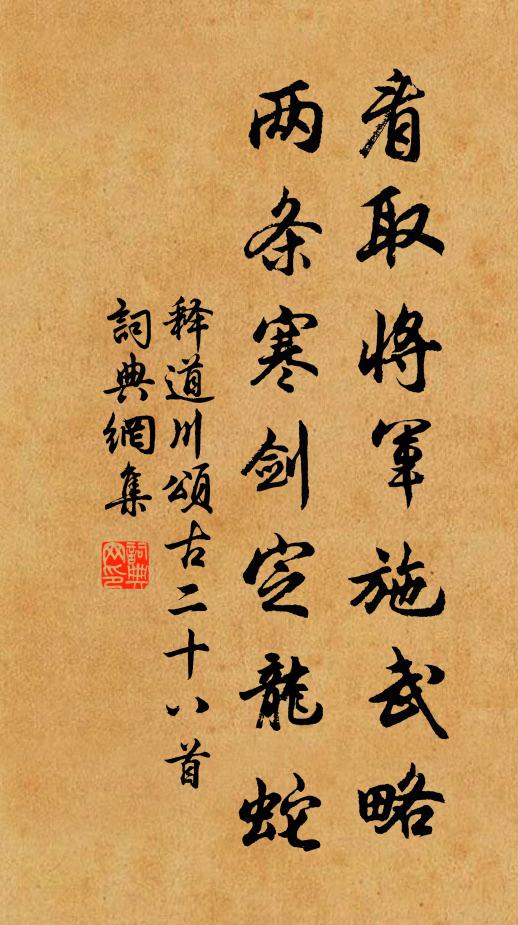 看取将军施武略
两条寒剑定龍蛇
释道川頌古二十八首
詞典網集
詞典网印